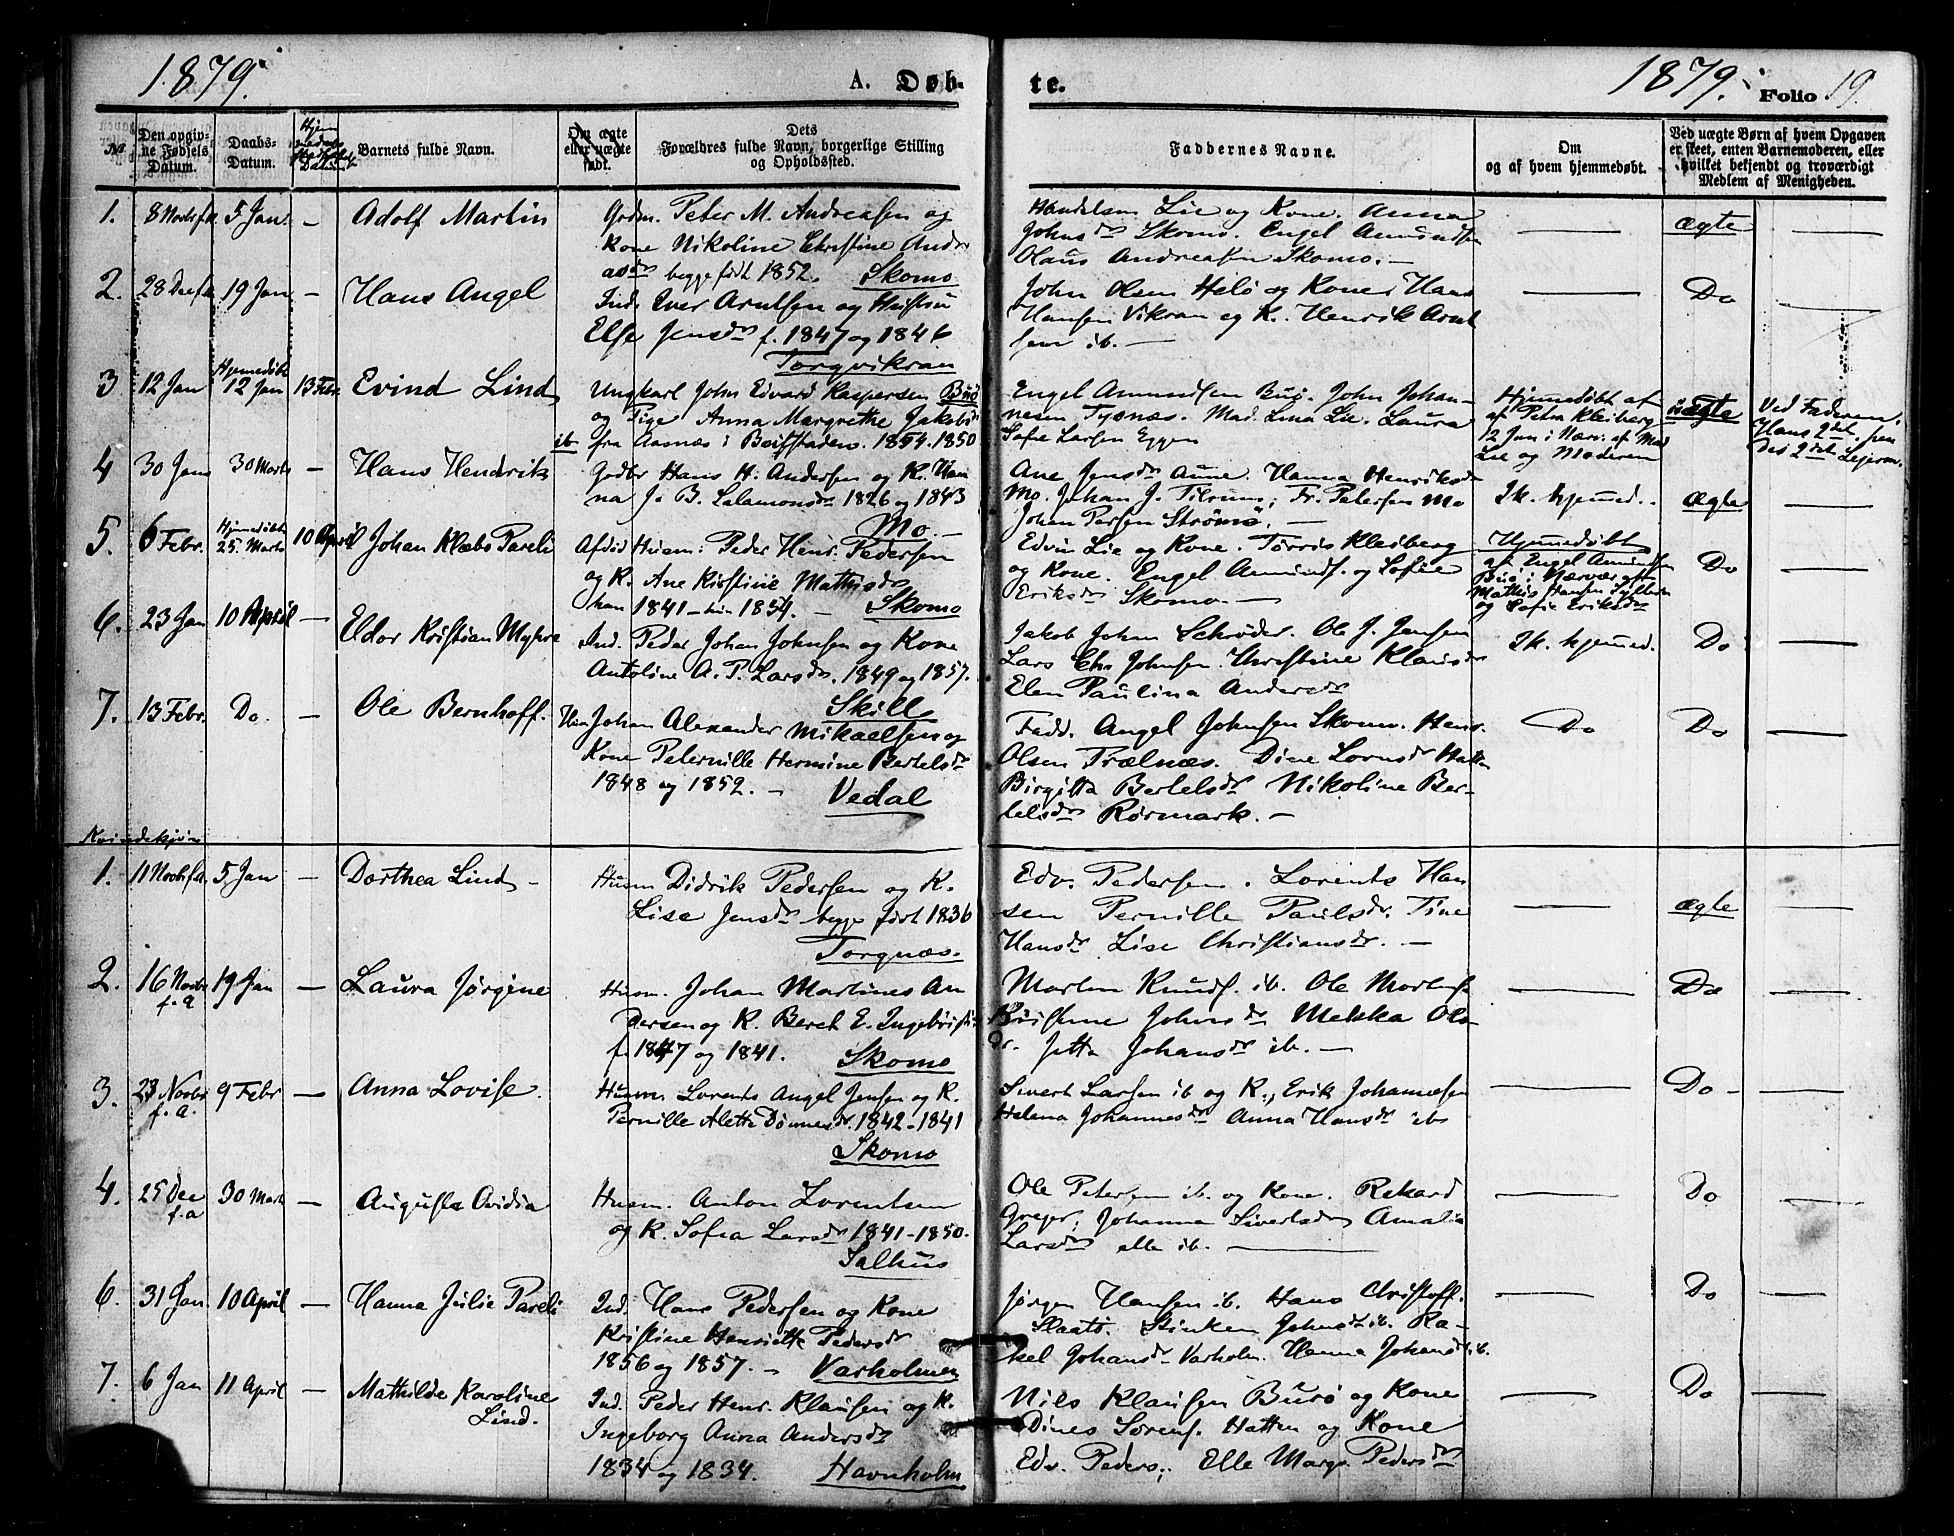 1879.
A. Døb-
te.
1879.
Folio 19.
№
Den opgivne Fødsels Datum.
Daabs-Datum.
Barnets fulde Navn.
Om ægte eller uægte født.
Dets Forældres fulde Navn, borgerlige Stilling og Opholdssted.
Faddernes Navne.
Om og af hvem hjemmedøbt.
Ved uægte Børn af hvem Opgaven er skeet, enten Barnemoderen, eller hvilket bekjendt og troværdigt Medlem af Menigheden.
1. 8 Novbr f.a. 5 Jan. — Adolf Martin
Grdm. Peter M. Andreasen og
Kone Nikoline Christine Andr
asdr begge født 1852. Skomo
Handelsm Lie og Kone. Anna
Johnsdr Skomo. Engel Amundsen
Olaus Andreasen Skomo. —
— ægte —
2. 28 Dec f.a. 19 Jan — Hans Angel
Ind. Iver Arntsen og Hustru
Else Jensdr f. 1847 og 1846
Torgvikran
John Olsen Helø og Kone, Hans
Hansen Vikran og K. Henrik Arnt
sen ib. —
— Do —
3 12 Jan Hjemmedøbt 12 Jan 13 Febr. Evind Lind
Ungkarl John Edvard Kaspersen Burø
og Pige Anna Margrethe Jakobsdr
ib fra Aarnæs i 1854. 1850
Engel Amundsen Burø. John Johan-
nesen Tyønæs. Mad. Lina Lie. Laura
Sofie Larsen Eggen
Hjemmedøbt af
Petra Kleiberg
12 Jan i Nærv. af Mad
Lie og Moderen
uægte
Ved Faderen,
Hans 2det, hen
des 2det Leierm.
4 30 Jan 30 Marts — Hans Hendrik
Grdbr Hans H. Andersen og K. Han
na J. B. Salamonsdr 1826 og 1843
Mo. —
Ane Jensdr Aune. Hanna Henriksdr
Mo. Johan J. Tilrum; Fr. Petersen Mo
Johan Persen Strømø. —
Ik. hjemmed. ægte —
5. 6 Febr. Hjemmedøbt 25 Marts 10 April Johan Klæbo Pareli
Afdød Husm: Peder Henr. Pedersen
og K. Ane Kirstine Mathisdr
han 1841 – hun 1834. — Skomo
Edvin Lie og Kone. Torris Kleiberg
og Kone. Engel Amunds. og Sofie
Eriksdr Skomo. —
Hjemmedøbt
af Engel Amundsen
Burø i Nærvær af
Mathis Hansen
og Sofie Eriksdr
Do —
6. 23 Jan 10 April — Eldor Kristian Myhre
Ind. Peder Johan Johnsen og Kone
Antoline A. P. Larsdr. 1849 og 1857.
Skill
Jakob John Schrøder. Ole J. Jensen
Lars Chr Johnsen. Christine Klausdr
Elen Paulina Andersdr
Ik. hjemmed. Do —
7. 13 Febr. Do. — Ole Bernhoff.
Husm Johan Alexander Mikaelsen og
Kone Peternille Hermine Bertelsdr
1848 og 1852. — Vedal
Fadd. Angel Johnsen Skomo. Hans
Olsen Trælnæs. Dine Lornsdr Hatten
Birgitta Bertelsdr Nikoline Ber-
telsdr Rørmark. —
Do Do —
Kvindekjøn
1. 11 Novbr f.a. 5 Jan — Dorthea Lind —
Husm Didrik Pedersen og K.
Lise Jensdr begge født 1836
Torgnæs.
Edv. Pedersen. Lorents Han
sen Pernille Paulsdr. Tine
Hansdr. Lise Christiansdr. —
— ægte —
2. 16 Novbr f.a 19 Jan — Laura Jørgine
Husm. Johan Martines An
dersen og K. Beret E. Ingebrigtsdr
f. 1847 og 1841. Skomo
Morten Knuds. ib. Ole Mortens
Kristine Johnsdr Mekka Ols-
dr. Jetta Johansdr ib. —
— Do —
3. 23 Novbr f.a. 9 Febr — Anna Lovise.
Husm. Lorents Angel Jensen og K.
Pernille Aletta Dønnesdr. 1842–1841
Skomo
Sivert Larsen ib og K., Erik Johannesen
Helena Johannesdr Anna Hansdr ib
— Do —
4. 25 Dec f.a 30 Marts — Augusta Ovidia
Husm. Anton Lorentsen
og K. Sofia Larsdr 1841–1850.
Salhus
Ole Petersen ib. og Kone. Rikard
Greger; Johanna Sivertsdr Amalia
Larsdr alle ib. —
— Do —
6. 31 Jan. 10 April — Hanna Julie Pareli
Ind. Hans Pedersen og Kone
Kristine Henriette Pedersdr
1856 og 1857. — Varholmen
Jørgen Hansen ib. Hans Christoff.
Slaatø. Stinken Johnsdr ib. Ra-
kel Johansdr Varholm. Hanna Johansdr ib.
— Do —
7. 6 Jan 11 April — Mathilde Karoline
Lind.
Ind. Peder Henr. Klausen og K.
Ingeborg Anna Andersdr
1834 og 1834. Havnholm
Nils Klausen Burø og Kone
Dines Sørens. Hatten og Kone
Edv. Peders.; Elle Marg. Pedersdr
— Do —